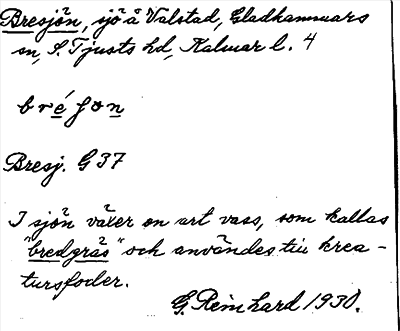 Bresjön, sjö å Valstad, Gladhammars
sn, S. Tjusts hd, Kalmar l. 4
bréʃon
Bresj. G 37
I sjön växer en art vass, som kallas
"bredgräs" och användes till krea-
tursfoder.
G. Reinhard 1930.